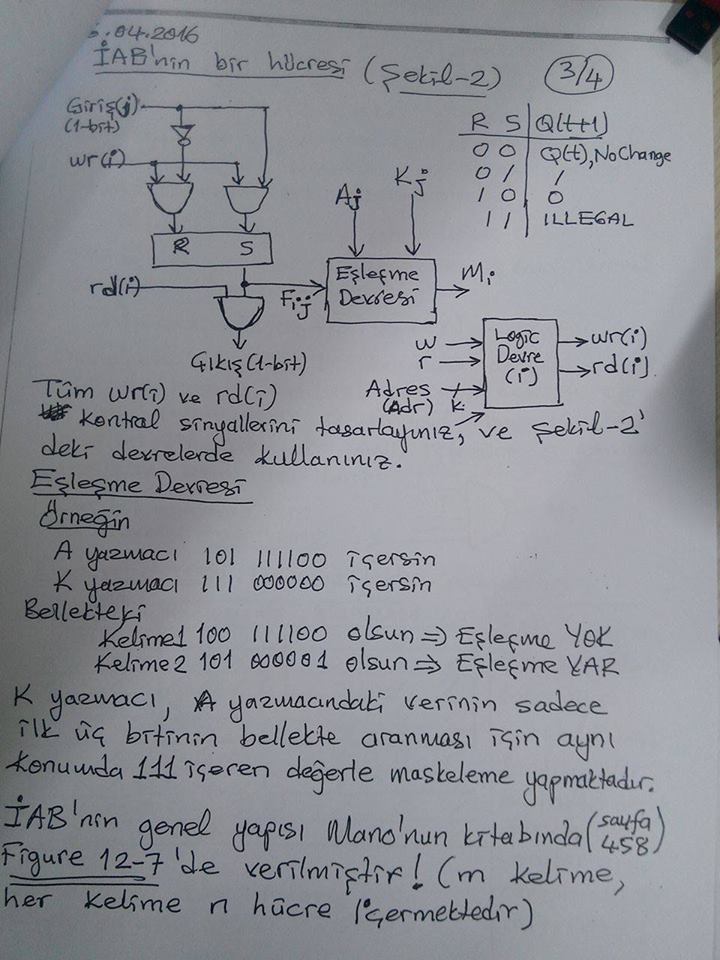 .04.2016
İAB'nin bir hücresi (Şekil-2) 3/4
Giriş(j)
(1-bit)
wr(i)
R S
rd(i)
Çıkış (1-bit)
Fij
Aj
Kj
Eşleşme
Devresi
Mi
R S Q(t+1)
0 0 Q(t), No Change
0 1 1
1 0 0
1 1 ILLEGAL
w
r
Adres
(Adr) k
Logic
Devre
(i)
wr(i)
rd(i)
Tüm wr(i) ve rd(i)
kontral sinyallerini tasarlayınız, ve Şekil-2'
deki devrelerde kullanınız.
Eşleşme Devresi
Örneğin
A yazmacı 101 111100 içersin
K yazmacı 111 000000 içersin
Bellekteki
Kelime1 100 111100 olsun ⇒ Eşleşme YOK
Kelime2 101 000001 olsun ⇒ Eşleşme VAR
K yazmacı, A yazmacındaki verinin sadece
ilk üç bitinin bellekte aranması için aynı
konumda 111 içeren değerle maskeleme yapmaktadır.
İAB'nin genel yapısı Mano'nun kitabında (sayfa 458)
Figure 12-7'de verilmiştir! (m kelime,
her kelime n hücre içermektedir)